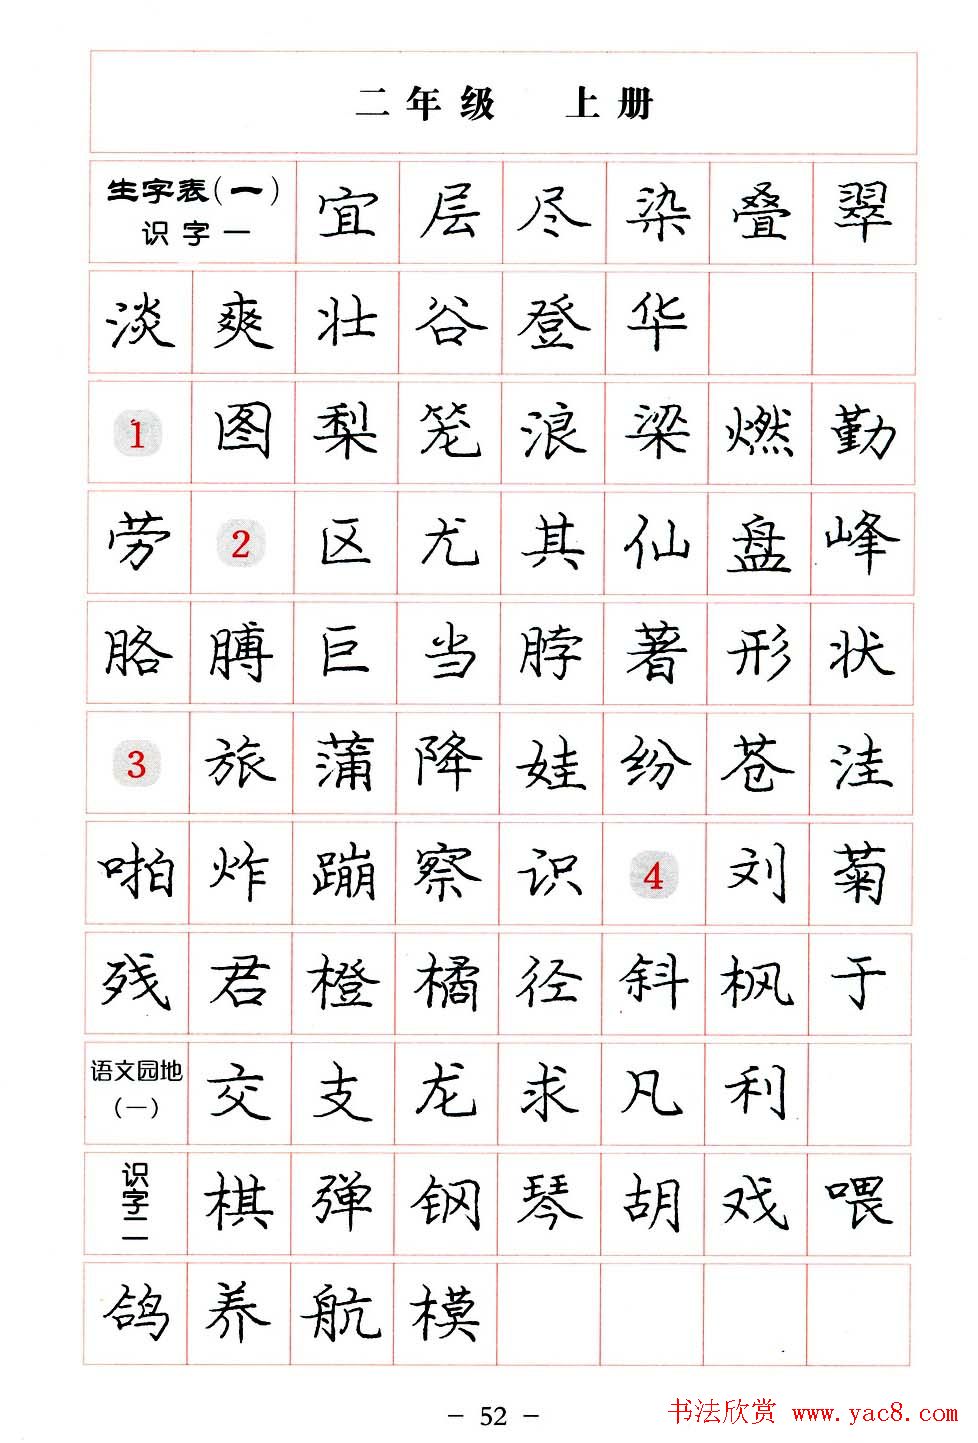 二年级 上册
生字表(一)
识字一 宜 层 尽 染 叠 翠
淡 爽 壮 谷 登 华
1 图 梨 笼 浪 梁 燃 勤
劳 2 区 尤 其 仙 盘 峰
胳 膊 巨 当 脖 著 形 状
3 旅 蒲 降 娃 纷 苍 洼
啪 炸 蹦 察 识 4 刘 菊
残 君 橙 橘 径 斜 枫 于
语文园地
(一) 交 支 龙 求 凡 利
识字二 棋 弹 钢 琴 胡 戏 喂
鸽 养 航 模
- 52 -
书法欣赏 www.yac8.com